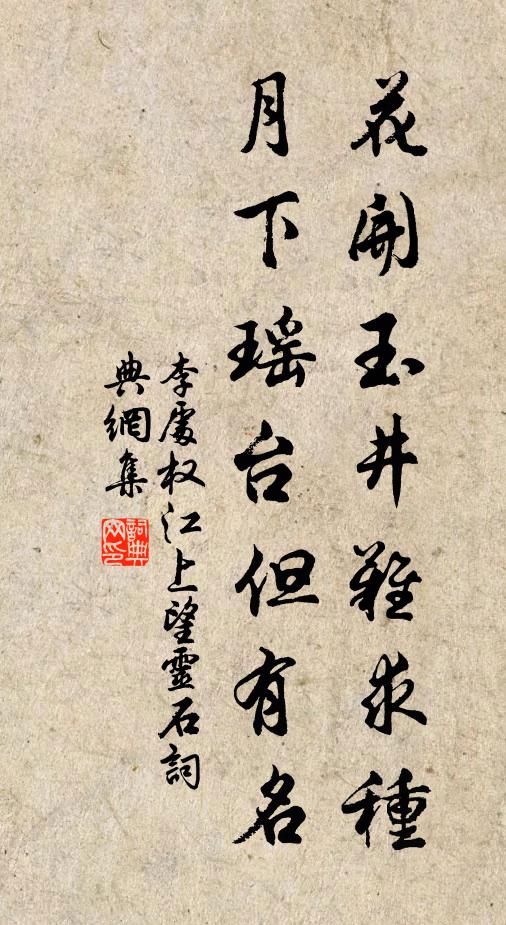 花開玉井難求種
月下瑶台但有名
李處权江上望靈石詞
典網集
詞典网印